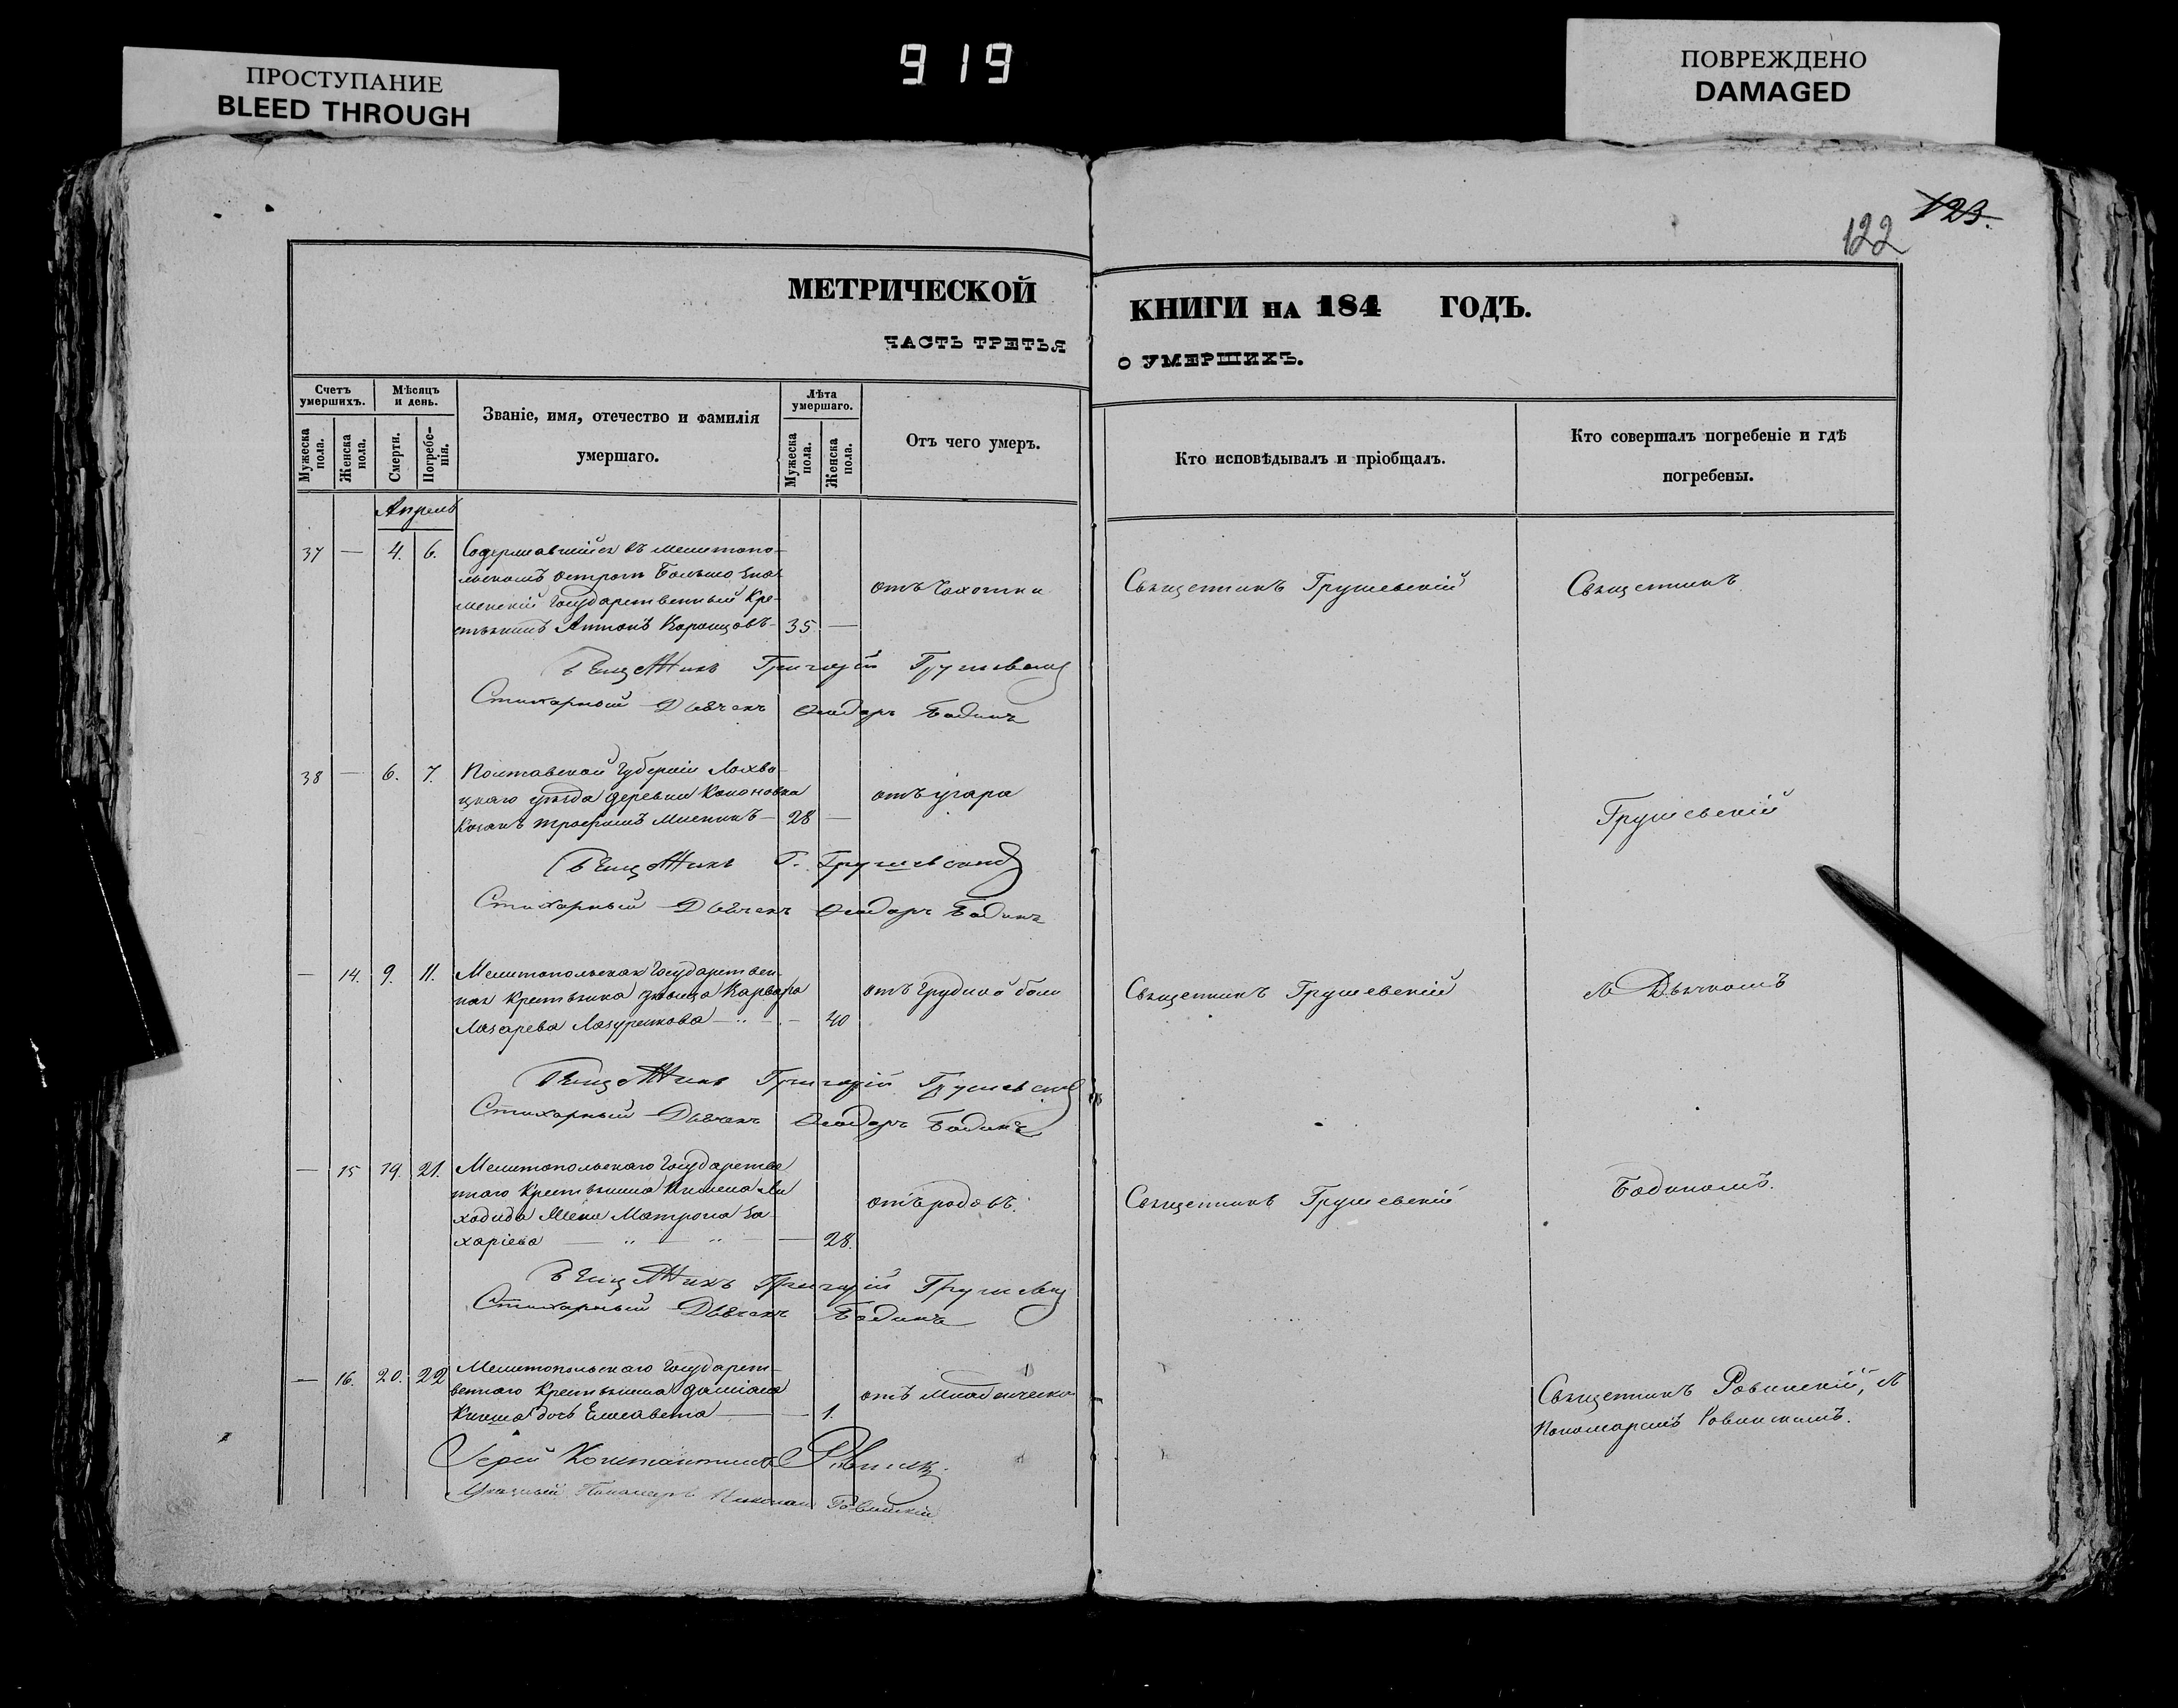 ПРОСТУПАНИЕ
BLEED THROUGH
919
ПОВРЕЖДЕНО
DAMAGED
123.
122
МЕТРИЧЕСКОЙ
КНИГИ НА 184 ГОДЪ.
ЧАСТЬ ТРЕТЬЯ
О УМЕРШИХЪ.
Счетъ умершихъ.
Мужеска пола.
Женска пола.
Мѣсяцъ и день.
Смерти.
Погребе-
нія.
Званіе, имя, отечество и фамилія
умершаго.
Лѣта умершаго.
Мужеска пола.
Женска пола.
Отъ чего умеръ.
Кто исповѣдывалъ и пріобщалъ.
Кто совершалъ погребеніе и гдѣ
погребены.
Апрель
37 — 4. 6. Содержавшійся въ мелитопо-
льскомъ острогѣ Больше зна-
менскій Государственный Кре-
стьянинъ Антонъ 35 —
отъ Чахотки
Священникъ Грушевскій
Священникъ
Священникъ Григорій Грушевскій
Стихарный Дьячекъ Ѳеодоръ Бадинъ
38 — 6. 7. Полтавской Губерніи Лохви-
цкаго уѣзда деревни
Козакъ Трофимъ 28 —
отъ угара
Грушевскій
Священникъ Г. Грушевскій
Стихарный Дьячекъ Ѳеодоръ Бадинъ
— 14. 9. 11. Мелитопольская Государствен-
ная Крестьянка Варвара
Лазарева — 40
отъ Грудной боли
Священникъ Грушевскій
съ Дьячкомъ
Священникъ Григорій Грушевскій
Стихарный Дьячекъ Ѳеодоръ Бадинъ
— 15 19. 21. Мелитопольскаго Государстве
ннаго Крестьянина
Жена Матрона За-
харіева — 28.
отъ родовъ.
Священникъ Грушевскій
Бадинымъ.
Священникъ Григорій Грушевскій
Стихарный Дьячекъ Бадинъ
— 16. 20. 22 Мелитопольскаго Государст-
веннаго Крестьянина Даміана
дочь Елисавета — 1.
отъ младенческой
Священникъ Ровинскій, съ
Пономаремъ Ровинскимъ.
Іерей Константинъ Ровинскій
Пономарь Николай Ровинскій